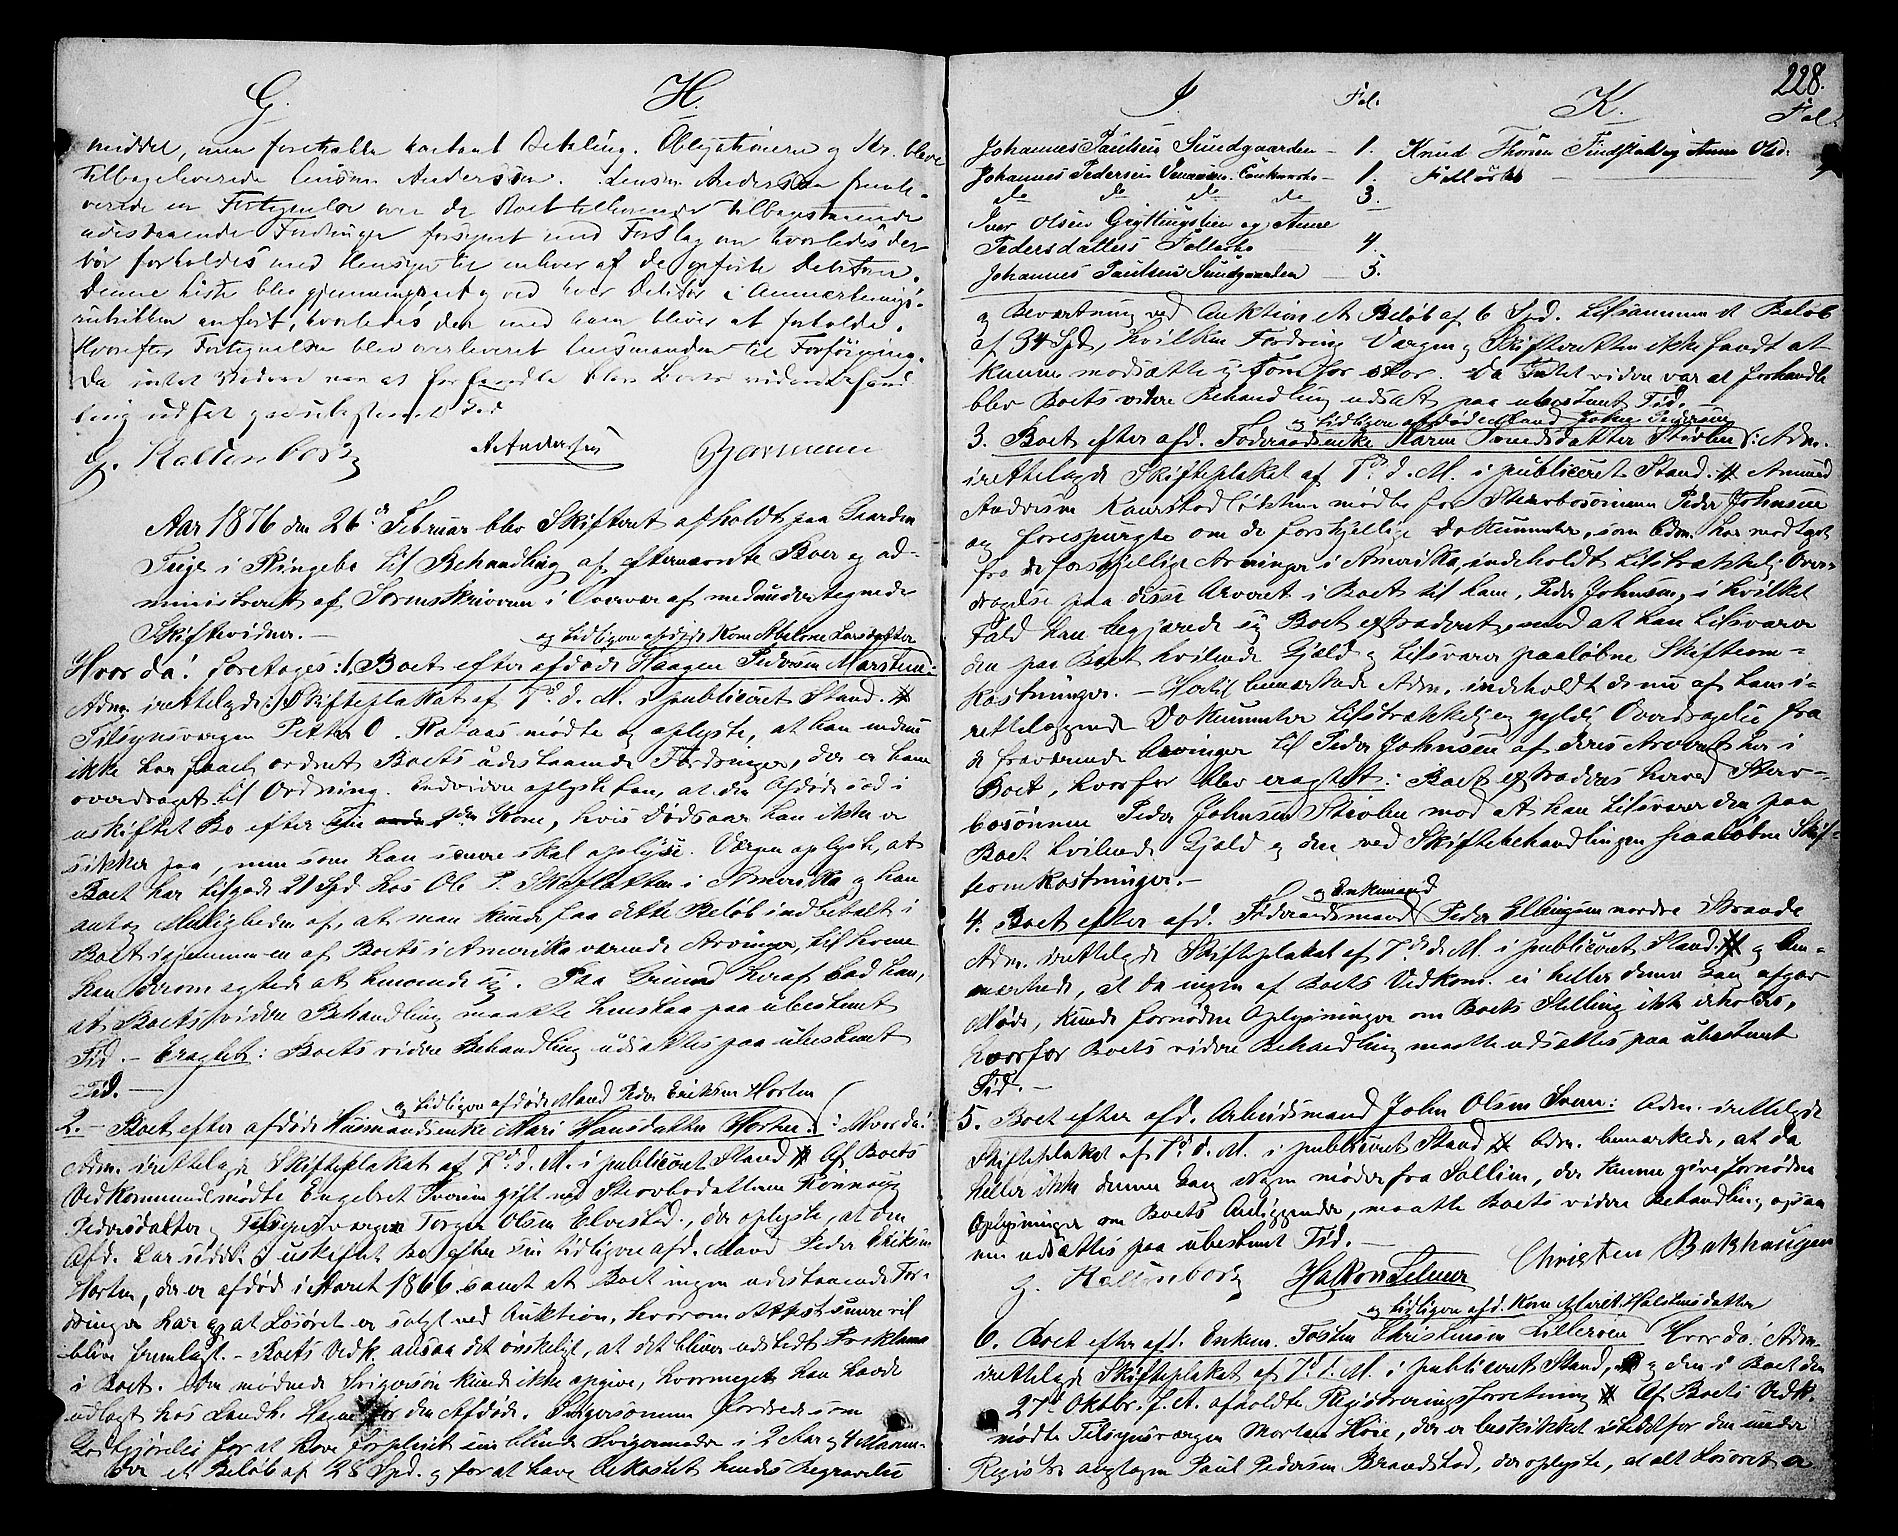 G.
H.
middel, men foretrække kontant Betaling. Obligationerne og Kr. bleve
tilbageleverede Lensm. Andersen. Lensm. Andersen frem-
viste en Fortegnelse over de Boet tilhørende tilbagestaaende
udestaaende Fordringer forsynet med Forslag om hvorledes der
bør forholdes med Hensyn til enhver af de opførte Debitorer.
Denne Liste blev gjennemgaaet og ved hver Debitor i Anmærknings-
rubrikken anført, hvorledes der med ham bliver at forholde.
Hvorefter Fortegnelsen blev overleveret Lensmanden til Forføining.
Da intet videre var at forhandle blev Boets videre Behand-
ling udsat paa ubestemt Tid
G. Kaltenborn
A. Andersen
Bjormann
Aar 1876 den 26de Februar blev Skifteret afholdt paa Gaarden
Trige i Ringebo til Behandling af efternævnte Boer og ad-
ministreret af Sorenskriveren i Overvær af medundertegnede
Skiftevidner. –
og tidligere afdøde Kone Malene Larsdatter
Hvor da! foretoges: 1, Boet efter afdøde Haagen Pedersen Marstein:
Adm. irettelagde: Skifteplakat af 7de d. M. i publiceret Stand. #
Tilsynsværgen Petter O. Rolaas mødte og oplyste, at han endnu
ikke har faaet ordnet Boets udestaaende Fordringer, der er ham
overdraget til Ordning. Endvidere oplyste han, at den Afdøde sad i
uskiftet Bo efter sin Kone, hvis Dødsaar han ikke er
sikker paa, men som han senere skal oplyse. Værgen oplyste, at
Boet har tilgode 21 Spd hos Ole P. i Amerika og han
antog Muligheden af, at man kunde faa dette Beløb indbetalt i
Boet igjennem en af Boets i Amerika værende Arvinger, til hvem
han derom agtede at henvende sig. Paa Grund heraf bad han,
at Boets videre Behandling maatte henstaa paa ubestemt
Tid. – Eragtet: Boets videre Behandling udsættes paa ubestemt
Tid. –
og tidligere afdøde Mand Peder Eriksen Horten
2. – Boet efter afdøde Husmandsenke Mari Hansdatter Horten: Hvor da!
Adm. irettelagde Skifteplakat af 7de d. M. i publiceret Stand # Af Boets
Vedkommende mødte Engebret Iversen gift med Stervbodatteren Rønnaug
Pedersdatter og Tilsynsværgen Torger Olsen Elvestad, der oplyste, at den
Afd. har siddet i uskiftet Bo efter sin tidligere afd. Mand Peder Eriksen
Horten, der er afdød i Aaret 1866 samt at Boet ingen udestaaende For-
dringer har og at Løsøret er solgt ved Auktion, hvorom Attest senere vil
blive fremlagt. – Boets Vedk. ansaa det ønskeligt, at det bliver udstedt Proklama
i Boet. Den mødende Svigersøn kunde ikke opgive, hvormeget han havde
udlagt hos Landh. for den Afdøde. Svigersønnen fordrede som
Godtgjørelse for at have forpleiet sin blinde Svigermoder i 2 Aar og 4 Maane-
der et Beløb af 28 Spd. og for at have bekostet hendes Begravelse
228.
I.
Fol.
K.
Fol.
Johannes Paulsen Sundgaarden – 1.
Knud Thoresen og Anne Olsd.
Johannes Pedersen – 1.
Fællesbo
do do do do 3.
Iver Olsen Gryttingslien og Anne
Pedersdatters Fællesbo 4.
Johannes Paulsen Sundgaarden – 5.
og Bevertning ved Auktion et Beløb af 6 Spd. tilsammen et Beløb
af 34 Spd, hvilken Fordring Værgen og Skifteretten ikke fandt at
kunne modsætte sig som for stor. Da Intet videre var at forhandle
blev Boets videre Behandling udsat paa ubestemt Tid. –
og tidligere afdøde Mand John Pedersen
3. Boet efter afd. Føderaadsenke Karen Amundsdatter Stuvlien: Adm.
irettelagde Skifteplakat af 7de d. M. i publiceret Stand. # Amund
Andersen Kaurstad Løkken mødte for Stervbosønnen Peder Johnsen
og forespurgte om de forskjellige Dokumenter, som Adm. har modtaget
fra de forskjellige Arvinger i Amerika, indeholdt tilstrækkelig Over-
dragelse paa disses Arveret i Boet til ham, Peder Johnsen, i hvilket
Fald han begjærede sig Boet extraderet, mod at han tilsvarer
den paa Boet hvilende Gjæld og tilsvarer paaløbne Skifteom-
kostninger. – Hertil bemærkede Adm. indeholdt de nu af ham i-
rettelæggende Dokumenter tilstrækkelig og gyldig Overdragelse fra
de fraværende Arvinger til Peder Johnsen af deres Arveret her i
Boet, hvorfor blev eragtet: Boet extraderes herved Sterv-
bosønnen Peder Johnsen Stuvlien mod at han tilsvarer den paa
Boet hvilende Gjæld og den ved Skiftebehandlingen paaløbne Skif-
teomkostninger. –
og Enkemand
4. Boet efter afd. Føderaadsmand Peder Ellingsen nordre Brande
Adm. irettelagde Skifteplakat af 7de d. M. i publiceret Stand. # og be-
mærkede, at da ingen af Boets Vedkom. ei heller denne Gang afgav
Møde, kunde fornødne Oplysninger om Boets Stilling ikke erholdes,
hvorfor Boets videre Behandling maatte udsættes paa ubestemt
Tid. –
5. Boet efter afd. Arbeidsmand John Olsen Sveen: Adm. irettelagde
Skifteplakat af 7de d. M. i publiceret Stand # Adm. bemærkede, at da
heller ikke denne Gang Nogen møder fra Sollien, der kunne give fornødne
Oplysninger om Boets Anliggender, maatte Boets videre Behandling ogsaa
nu udsættes paa ubestemt Tid. –
G. Kaltenborn
Haakon Selmer
Christen Bakhaugen
og tidligere afd. Kone Marit Halstensdatter
6. Boet efter afd. Enkem. Tosten Christensen Lillerøen Hvor da! Adm.
irettelagde Skifteplakat af 7de d. M. i publiceret Stand, # og den i Boet den
27de Oktbr. f. A. afholdte Registreringsforretning # Af Boets Vedk.
mødte Tilsynsværgen Morten Høie, der er beskikket istedetfor den under
Registr. antagen Paul Pedersen Brandstad, der oplyste, at alt Løsøret er